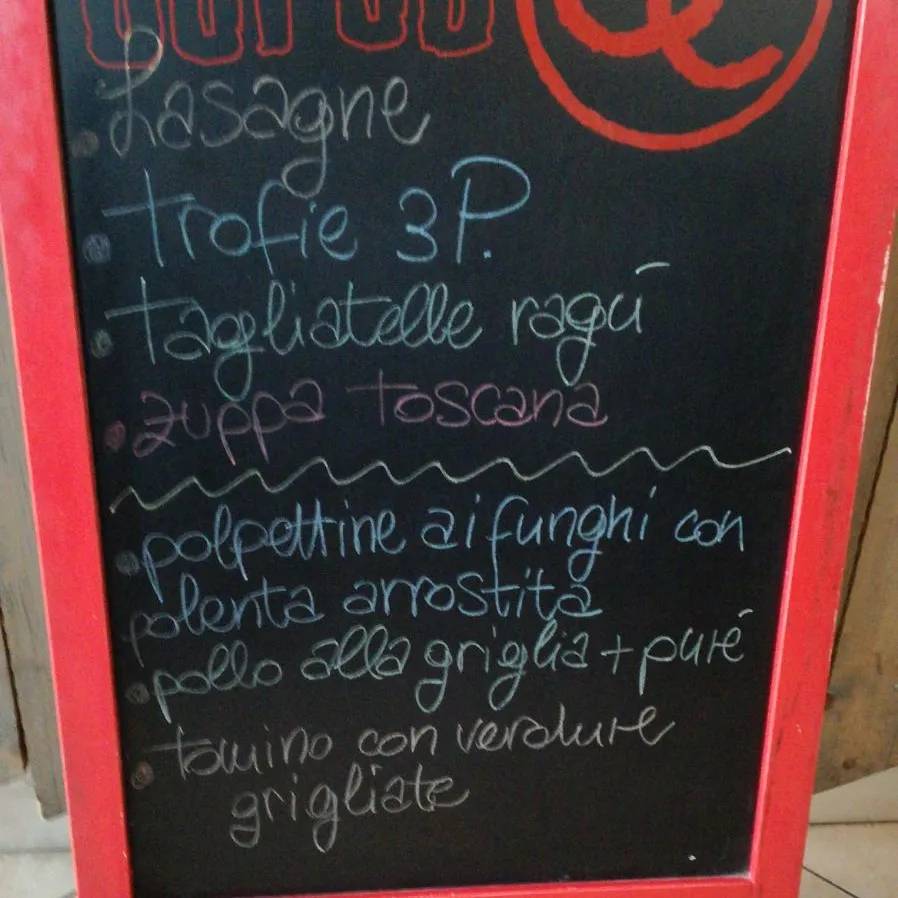 • Lasagne
• trofie 3P.
• tagliatelle ragú
• zuppa toscana
• polpettine ai funghi con
polenta arrostita
• pollo alla griglia + puré
• tomino con verdure
grigliate